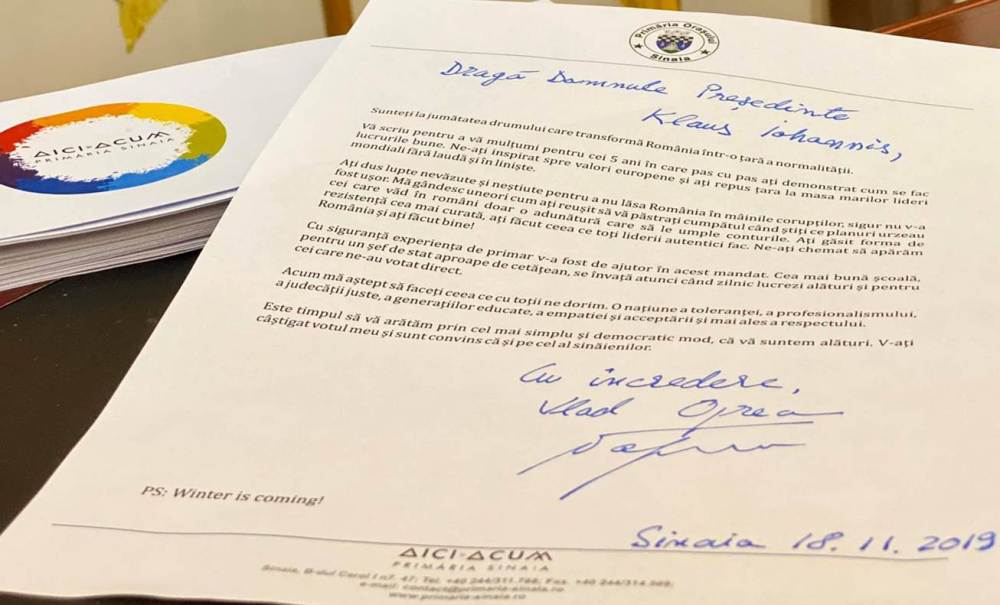 Primăria Orașului
Sinaia
Dragă Domnule Președinte
Klaus Iohannis,
AICI-ACUM
PRIMĂRIA SINAIA
Sunteți la jumătatea drumului care transformă România într-o țară a normalității.
Vă scriu pentru a vă mulțumi pentru cei 5 ani în care pas cu pas ați demonstrat cum se fac
lucrurile bune. Ne-ați inspirat spre valori europene și ați repus țara la masa marilor lideri
mondiali fără laudă și în liniște.
Ați dus lupte nevăzute și neștiute pentru a nu lăsa România în mâinile corupților, sigur nu v-a
fost ușor. Mă gândesc uneori cum ați reușit să vă păstrați cumpătul când știți ce planuri urzeau
cei care văd în români doar o adunătură care să le umple conturile. Ați găsit forma de
rezistență cea mai curată, ați făcut ceea ce toți liderii autentici fac. Ne-ați chemat să apărăm
România și ați făcut bine!
Cu siguranță experiența de primar v-a fost de ajutor în acest mandat. Cea mai bună școală,
pentru un șef de stat aproape de cetățean, se învață atunci când zilnic lucrezi alături și pentru
cei care ne-au votat direct.
Acum mă aștept să faceți ceea ce cu toții ne dorim. O națiune a toleranței, a profesionalismului,
a judecății juste, a generațiilor educate, a empatiei și acceptării și mai ales a respectului.
Este timpul să vă arătăm prin cel mai simplu și democratic mod, că vă suntem alături. V-ați
câștigat votul meu și sunt convins că și pe cel al sinăienilor.
Cu încredere,
Vlad Oprea
PS: Winter is coming!
Sinaia 18.11.2019
AICI-ACUM
PRIMĂRIA SINAIA
Sinaia, B-dul Carol I nr. 47; Tel. +40 244/311.788; Fax. +40 244/314.509;
e-mail: contact@primaria-sinaia.ro
www.primaria-sinaia.ro